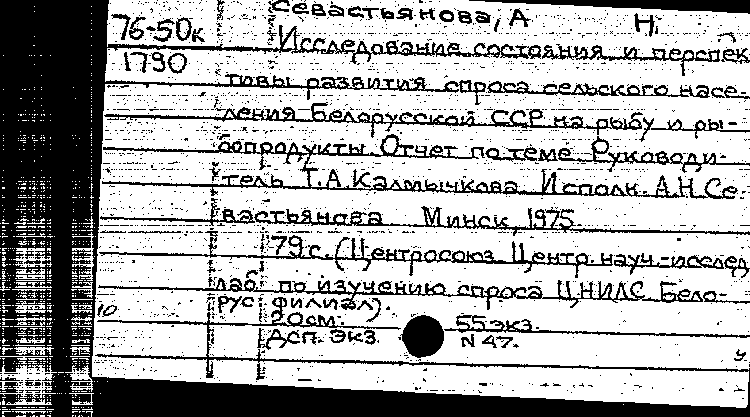 Севастьянова, А Н.
76-50к Исследование состояния и перспек
1790
тивы развития спроса сельского насе-
ления Белорусской ССР на рыбу и ры-
бопродукты. Отчет по теме. Руководи-
тель Т.А.Калмычкова. Исполн. А.Н.Се-
вастьянова Минск, 1975
79 с. (Центросоюз. Центр. науч.-исслед
лаб. по изучению спроса ЦНИЛС Бело-
рус филиал).
10 20см. 55 экз.
Дсп. экз. N 47.
у